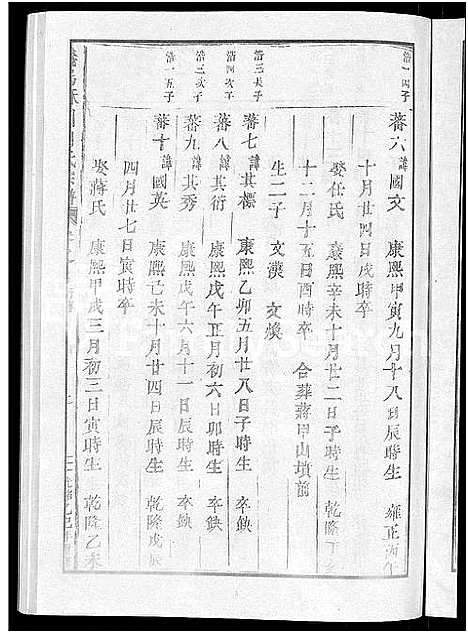 浩一四子
蕃六 諱國文 康熙甲寅九月十八日辰時生 雍正
十月廿四日戌時卒
娶任氏 康熙辛未十月廿二日子時生 乾隆
十二月十五日酉時卒 合葬蔣甲山墳前
生二子 文漢 文煥
浩三長子
蕃七 諱其標 康熙乙卯五月廿八日子時生 卒缺
浩四次子
蕃八 諱其傳 康熙戊午正月初六日卯時生 卒缺
浩三次子
蕃九 諱其秀 康熙戊午六月十一日辰時生 卒缺
浩一五子
蕃十 諱國英 康熙己未十月廿四日辰時生 乾隆戊辰
四月廿七日寅時卒
娶蔣氏 康熙甲戌三月初三日寅時生 乾隆乙未